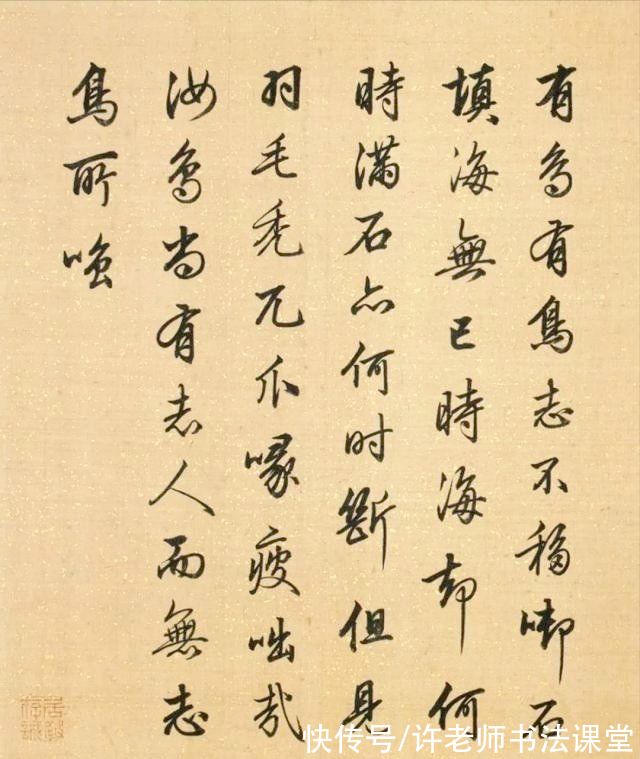 有鳥有鳥志不移啣石
填海無已時海却何
時滿石亦何时斷但見
羽毛禿兀爪喙疲咄哉
汝鳥尚有志人而無志
鳥所嗤
快传号/许老师书法课堂